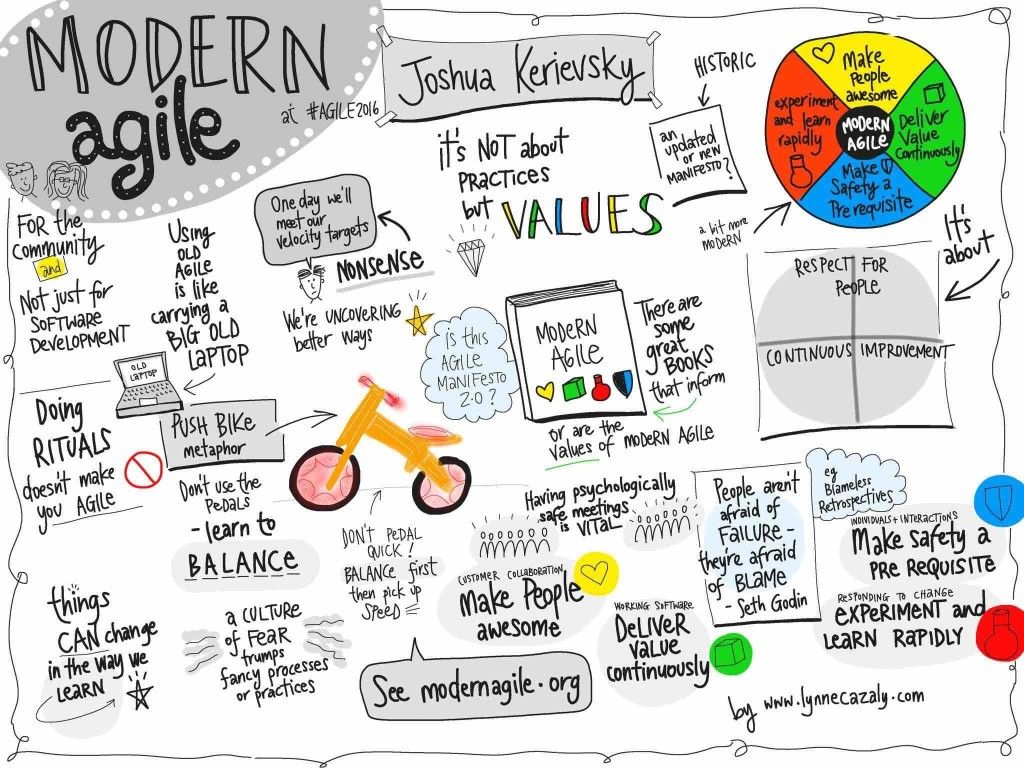 MODERN
agile
at #AGILE2016
Joshua Kerievsky
HISTORIC
an
updated
or new
MANIFESTO?
it's NOT about
PRACTICES
but VALUES
a bit more
MODERN
Make
People
awesome
experiment
and learn
rapidly
MODERN
AGILE
Deliver
Value
Continuously
Make
Safety a
Prerequisite
it's
about
RESPECT FOR
PEOPLE
CONTINUOUS IMPROVEMENT
FOR the
community
and
Not just for
SOFTWARE
DEVELOPMENT
Using
OLD
AGILE
is like
carrying a
BIG OLD
LAPTOP
OLD
LAPTOP
One day we'll
meet our
velocity targets
NONSENSE
We're UNCOVERING
better ways
is this
AGILE
MANIFESTO
2.0?
MODERN
AGILE
There are
some
great
BOOKS
that inform
or are the
values of MODERN AGILE
Doing
RITUALS
doesn't make
you AGILE
PUSH BIKE
metaphor
Don't use the
PEDALS
- learn to
BALANCE
DON'T PEDAL
QUICK!
BALANCE first
then pick up
SPEED
Having psychologically
safe meetings
is VITAL
People aren't
afraid of
FAILURE -
they're afraid
of BLAME
- Seth Godin
eg
Blameless
Retrospectives
INDIVIDUALS + INTERACTIONS
Make Safety a
PREREQUISITE
CUSTOMER COLLABORATION
Make People
awesome
WORKING SOFTWARE
DELIVER
VALUE
continuously
RESPONDING TO CHANGE
EXPERIMENT and
LEARN RAPIDLY
things
CAN change
in the way we
LEARN
a CULTURE
of FEAR
trumps
fancy processes
or practices
See modernagile.org
by www.lynnecazaly.com